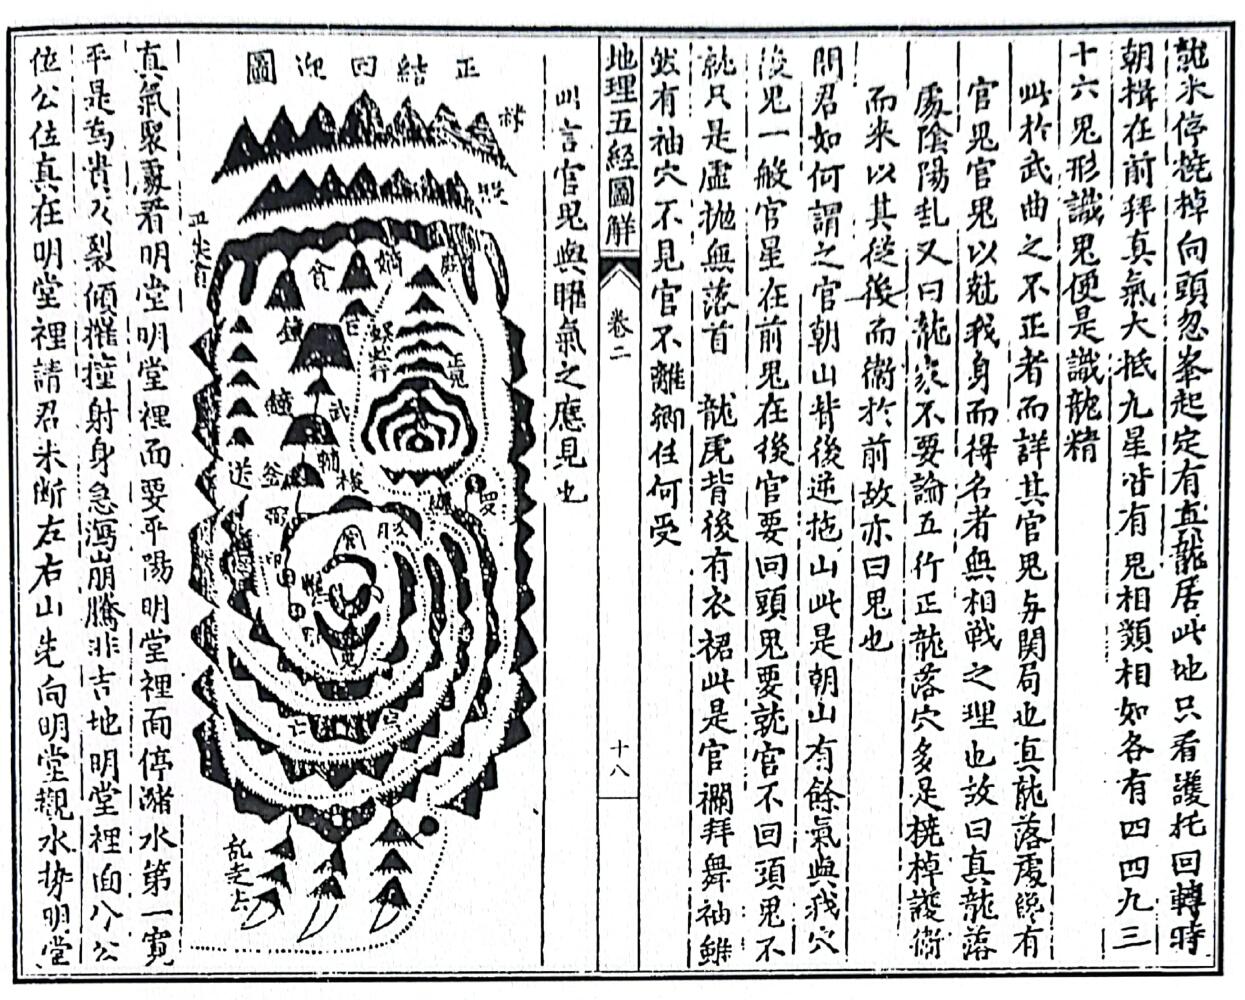 龍氷停橈棹向頭忽峯起定有真龍居此地只看護托回轉時
朝揖在前拜真氣大抵九星皆有鬼相類相如各有四四九三
十六鬼形識鬼便是識龍精
此於武曲之不正者而詳其官鬼与関局也真龍落處縂有
官鬼官鬼以尅我身而得名者無相戦之理也故曰真龍落
處陰陽乱又曰龍家不要論五行正龍落穴多是橈棹護衛
而来以其從後而衛於前故亦曰鬼也
問君如何謂之官朝山背後逆拖山此是朝山有餘氣與我穴
後鬼一般官星在前鬼在後官要回頭鬼要就官不回頭鬼不
就只是虛拋無落首　龍虎背後有衣裙此是官襴拜舞袖雖
然有袖穴不見官不離鄉任何受
地理五經圖解
卷二
十八
此言官鬼與聯氣之應見也
正結回迎圖
貪
武
輔
弼
送
釜
正鬼
官
鬼
乱走
真氣聚處看明堂明堂裡面要平陽明堂裡面停瀦水第一寬
平是為貴
傾摧撞射身急瀉崩騰非吉地明堂裡面公
位公位真在明堂裡請君未断左右山先向明堂觀水势明堂